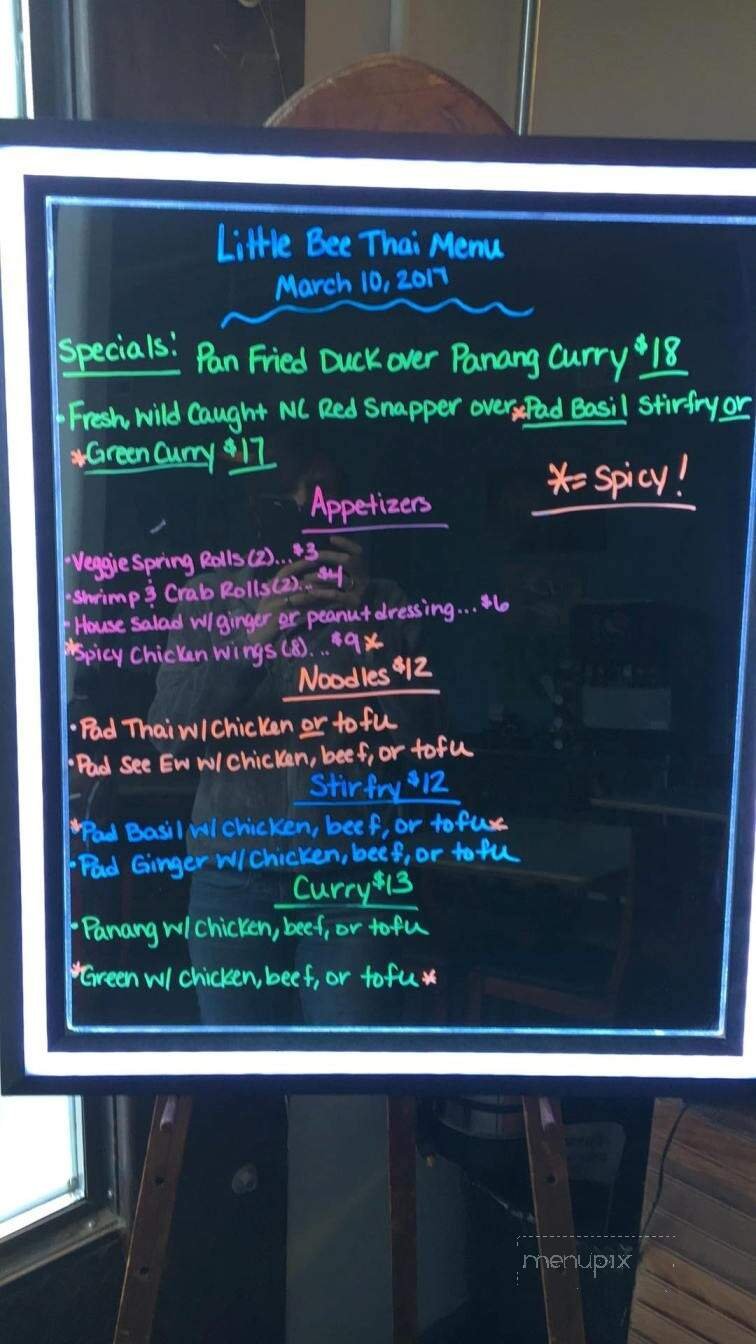 Little Bee Thai Menu
March 10, 2017
Specials: Pan Fried Duck over Panang Curry $18
• Fresh, Wild Caught NC Red Snapper over *Pad Basil Stirfry or
*Green Curry $17
*= Spicy!
Appetizers
• Veggie Spring Rolls (2)...$3
• Shrimp & Crab Rolls (2)...$4
• House Salad w/ ginger or peanut dressing...$6
*Spicy Chicken Wings (8)...$9*
Noodles $12
• Pad Thai w/ Chicken or tofu
• Pad See Ew w/ Chicken, beef, or tofu
Stirfry $12
*Pad Basil w/ Chicken, beef, or tofu*
• Pad Ginger w/ Chicken, beef, or tofu
Curry $13
• Panang w/ Chicken, beef, or tofu
*Green w/ Chicken, beef, or tofu*
menupix